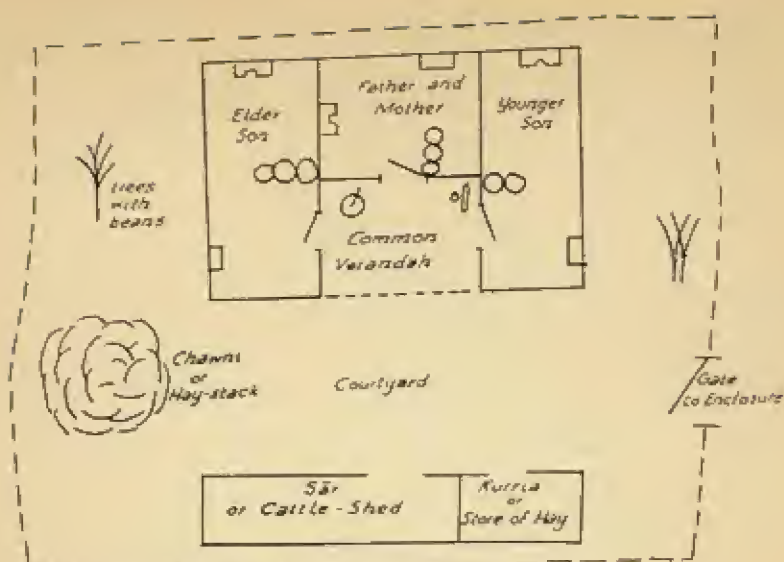 Elder
Son
Father and
Mother
Younger
Son
trees
with
beans
Common
Verandah
Chawni
or
Hay-stack
Courtyard
Gate
to Enclosure
Sār
or Cattle-Shed
Kurria
or
Store of Hay